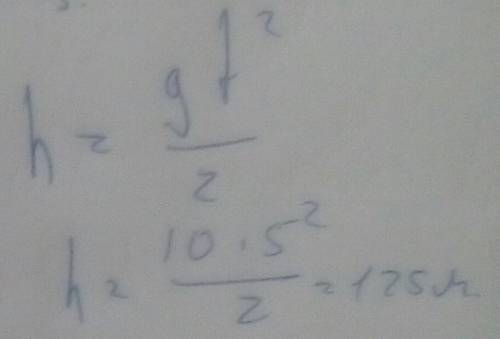 h = gt²/2
h = 10·5²/2 = 125 м